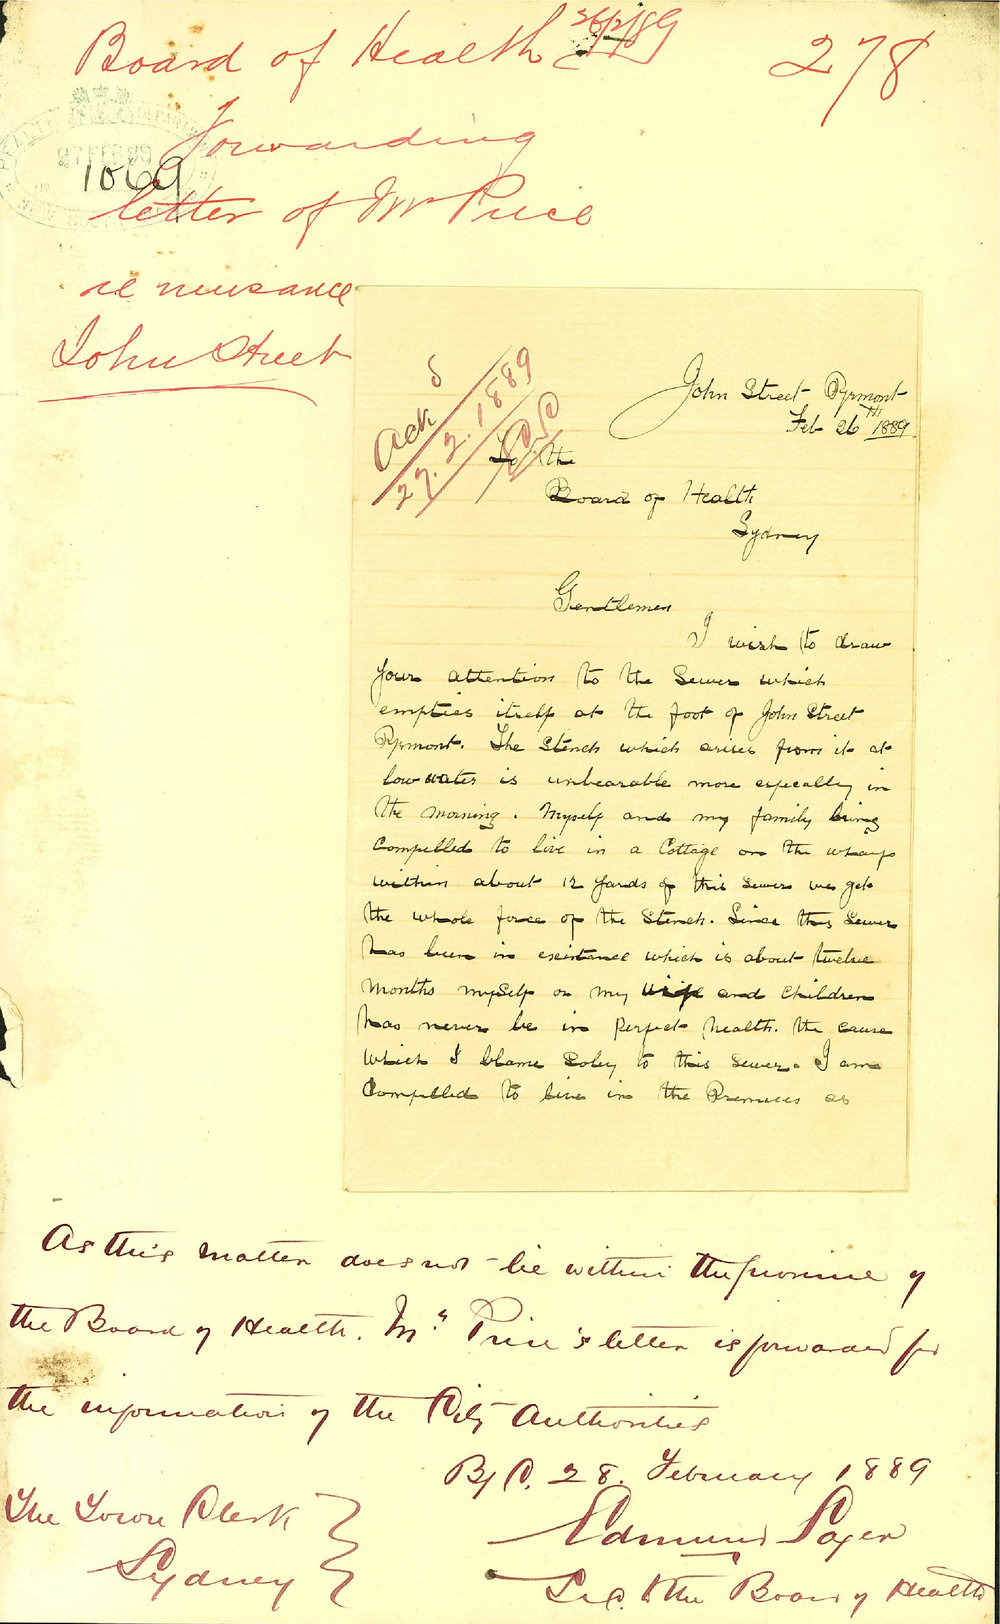 Board of Health 26/2/89
278
Forwarding
1069
letter of Mr Price
re nuisance
John Street
Ack d
27.2.1889
John Street Pyrmont
Feb 26th 1889
To the
Board of Health
Sydney
Gentlemen
I wish to draw
your attention to the Sewer which
empties itself at the foot of John Street
Pyrmont. The Stench which arises from it at
low water is unbearable more especally in
the morning. Myself and my family being
Compelled to live in a Cottage on the wharf
within about 12 yards of this sewer we get
the whole force of the Stench. Since this Sewer
has been in existance which is about twelve
months myself or my wife and Children
has never be in perfect health. the cause
which I blame Soley to this Sewer. I am
Compelled to live in the Premises as
As this matter does not lie within the province of
the Board of Health. Mr Price's letter is forwarded for
the information of the City Authorities
28. February 1889
The Town Clerk
Sydney
Edmund Sager
Sec. to the Board of Health